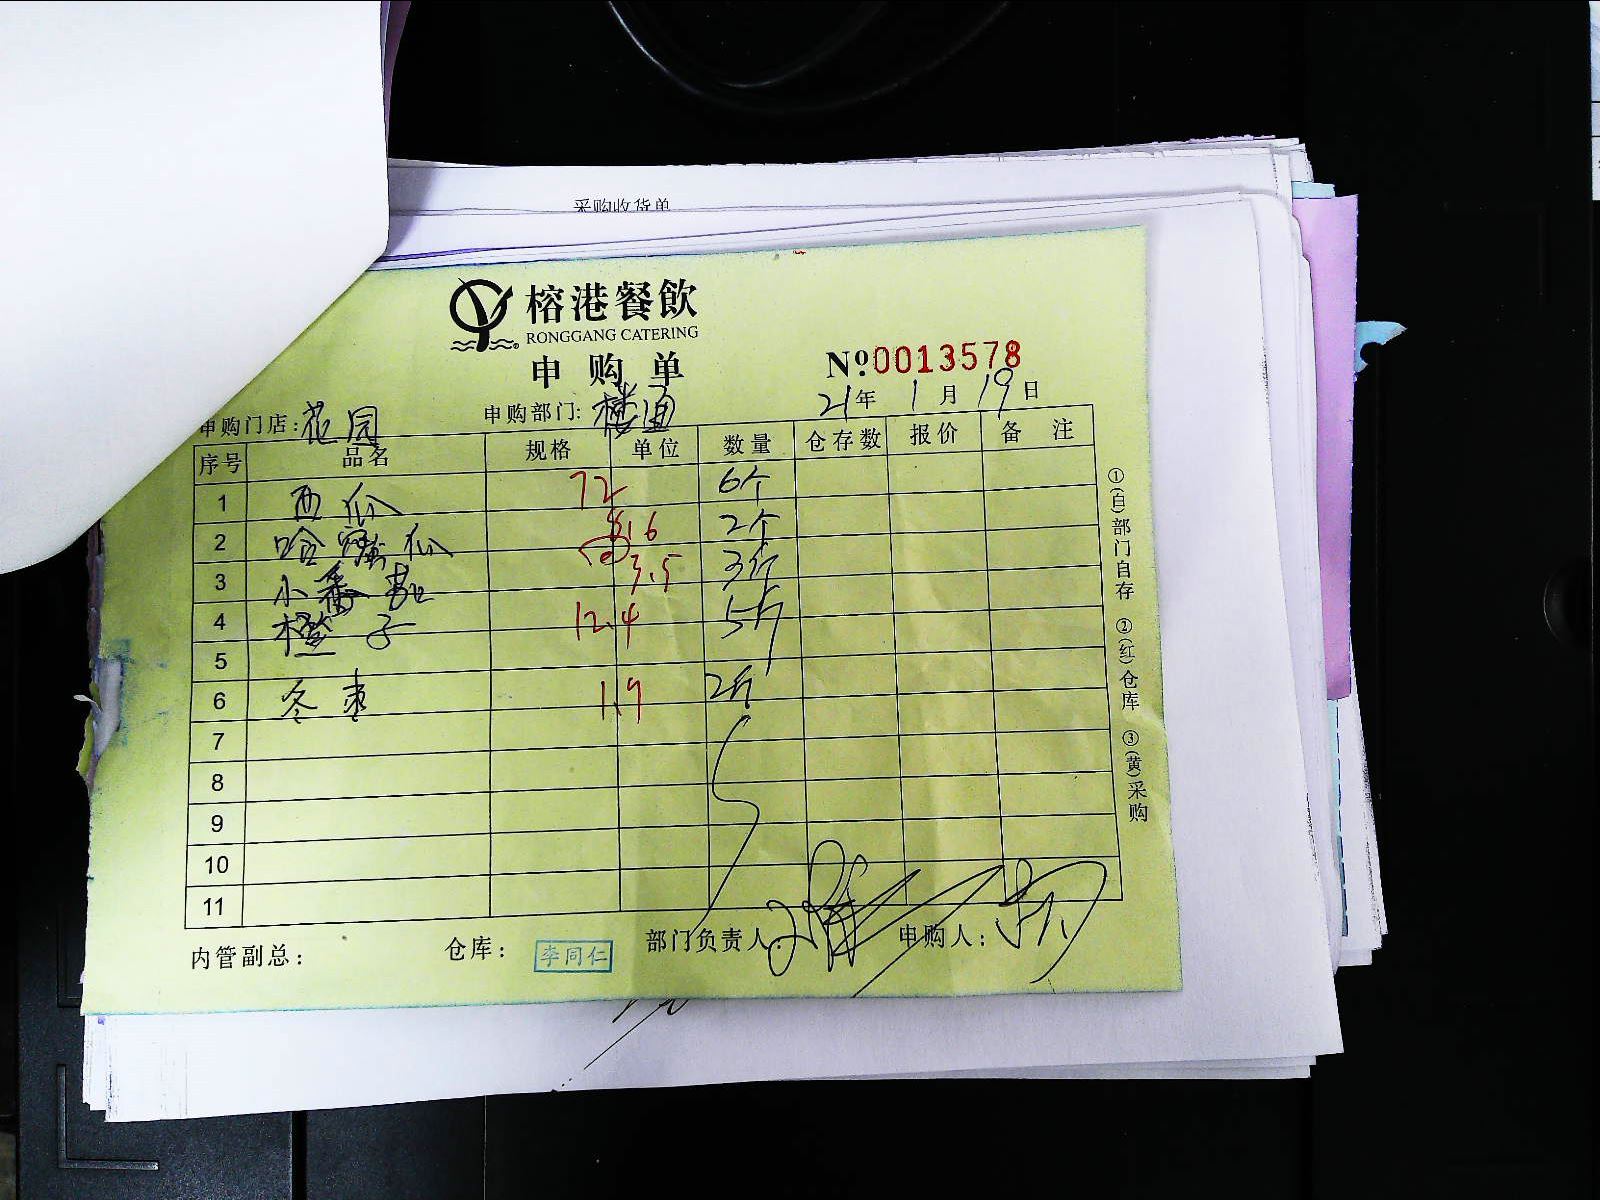 采购收货单
榕港餐飲
RONGGANG CATERING
申购单
Nº0013578
21年 1月 19日
申购门店: 花园
申购部门: 楼面
序号 品名 规格 单位 数量 仓存数 报价 备注
1 西瓜 72 6个
2 哈蜜瓜 2个
3 小番茄 3.5 3斤
4 橙子 12.4 5斤
5
6 冬枣 1.9 2斤
7
8
9
10
11
内管副总: 仓库: 李同仁 部门负责人: 申购人:
①(白)部门自存 ②(红)仓库 ③(黄)采购